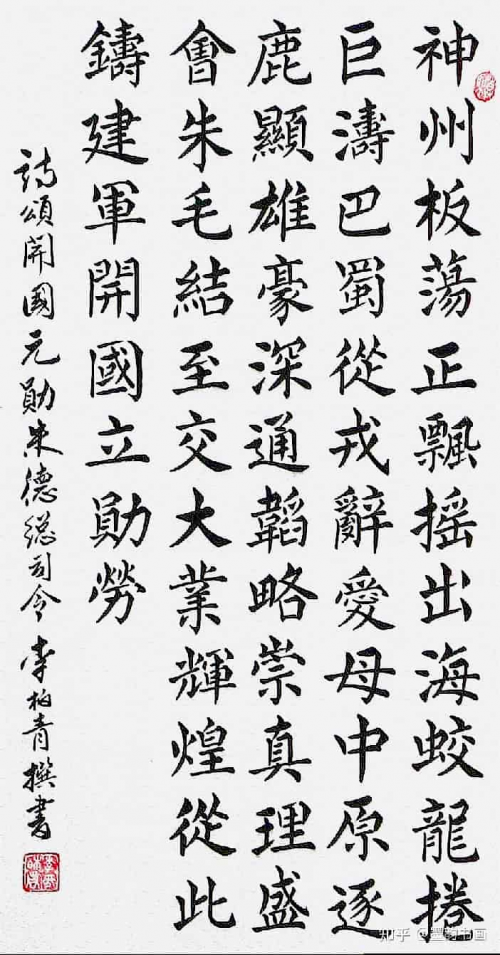 神州板蕩正飄摇出海蛟龍捲
巨濤巴蜀從戎辭愛母中原逐
鹿顯雄豪深通韜略崇真理盛
會朱毛結至交大業輝煌從此
鑄建軍開國立勋勞
詩頌開國元勋朱德總司令李柏青撰書
知乎 @墨韵书画